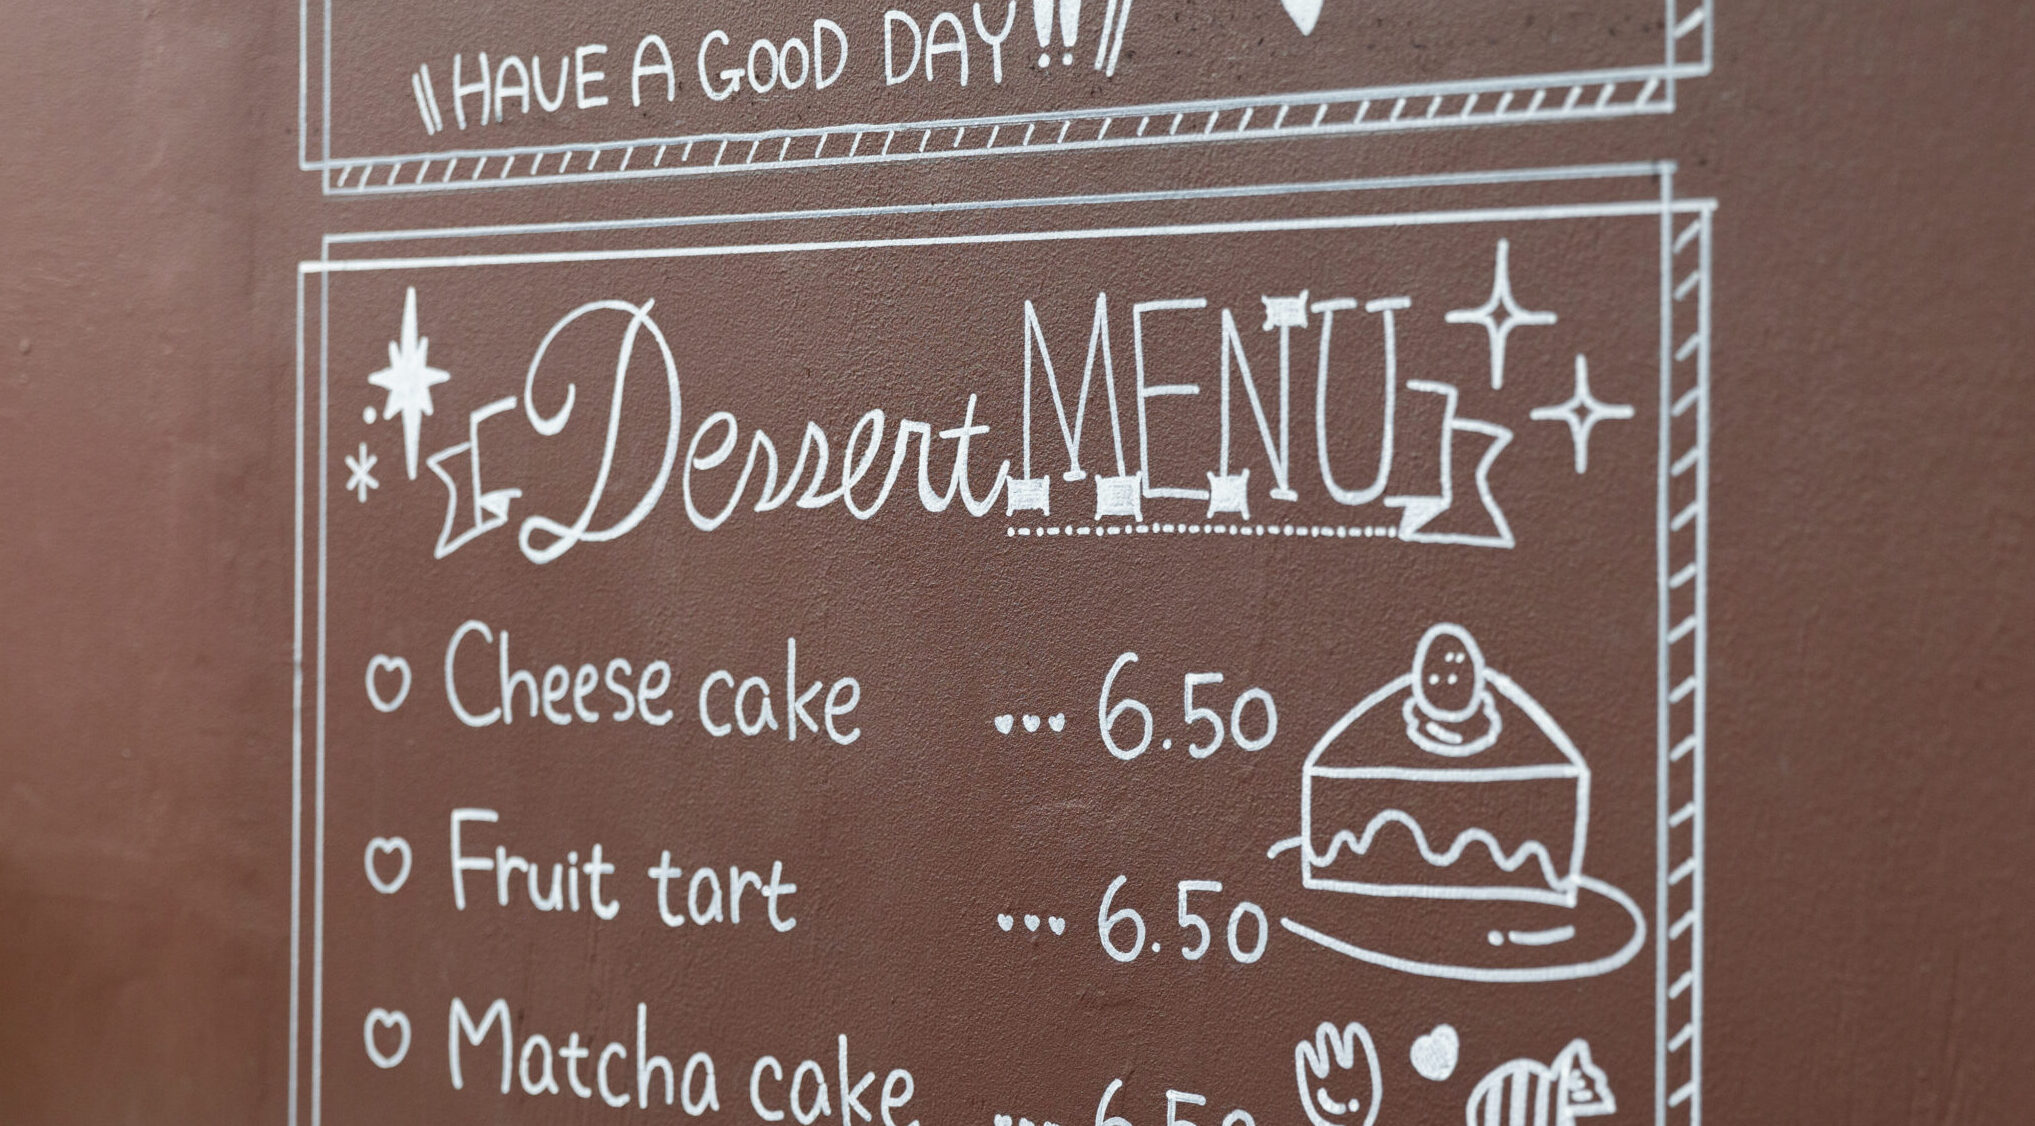 HAVE A GOOD DAY!!
Dessert MENU
Cheese cake ... 6.50
Fruit tart ... 6.50
Matcha cake ... 6.50